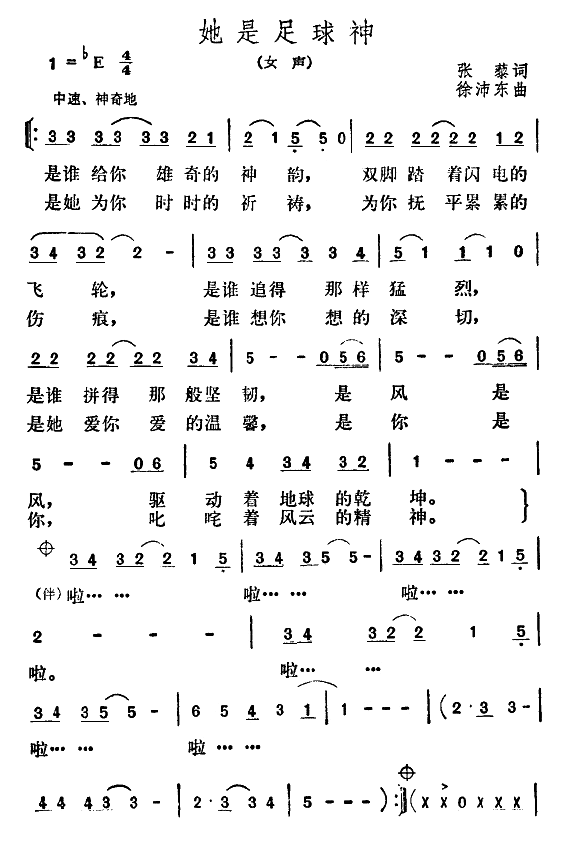 她是足球神
(女声)
1=♭E 4/4
张藜词
徐沛东曲
中速、神奇地
‖: 33 33 33 21 | 2 1 5 5 0 | 22 22 22 22 12 |
是谁给你 雄奇的神韵， 双脚踏着闪电的
是她为你 时时的祈祷， 为你抚平累累的
34 32 2 - | 33 33 33 34 | 5 1 1 1 0 |
飞轮， 是谁追得那样猛烈，
伤痕， 是谁想你想的深切，
22 22 22 22 34 | 5 - - 056 | 5 - - 056 |
是谁拼得那般坚韧， 是风是
是她爱你爱的温馨， 是你是
5 - - 06 | 5 4 34 32 | 1 - - - |
风， 驱动着地球的乾坤。
你， 叱咤着风云的精神。
34 32 2 1 5 | 34 35 5 - | 34 32 2 2 1 5 |
(伴)啦…… 啦…… 啦……
2 - - - | 34 32 2 1 5 |
啦。 啦……
34 35 5 - | 6 5 4 3 1 | 1 - - - | (2·3 3 - |
啦…… 啦……
44 43 3 - | 2·3 34 | 5 - - - ):‖ (X X O X X X |